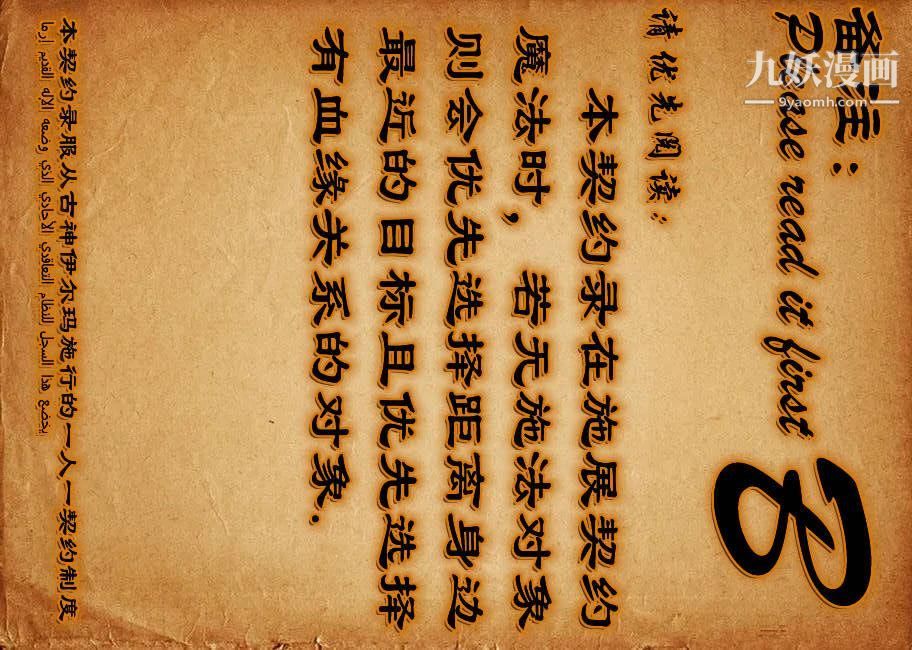 备注：
Please read it first
请优先阅读：
本契约录在施展契约
魔法时，若无施法对象
则会优先选择距离身边
最近的目标且优先选择
有血缘关系的对象.
本契约录服从古神伊尔玛施行的一人一契约制度
يخضع هذا السجل للنظام التعاقدي الأحادي الذي وضعه الإله القديم إرما
九妖漫画
9yaomh.com